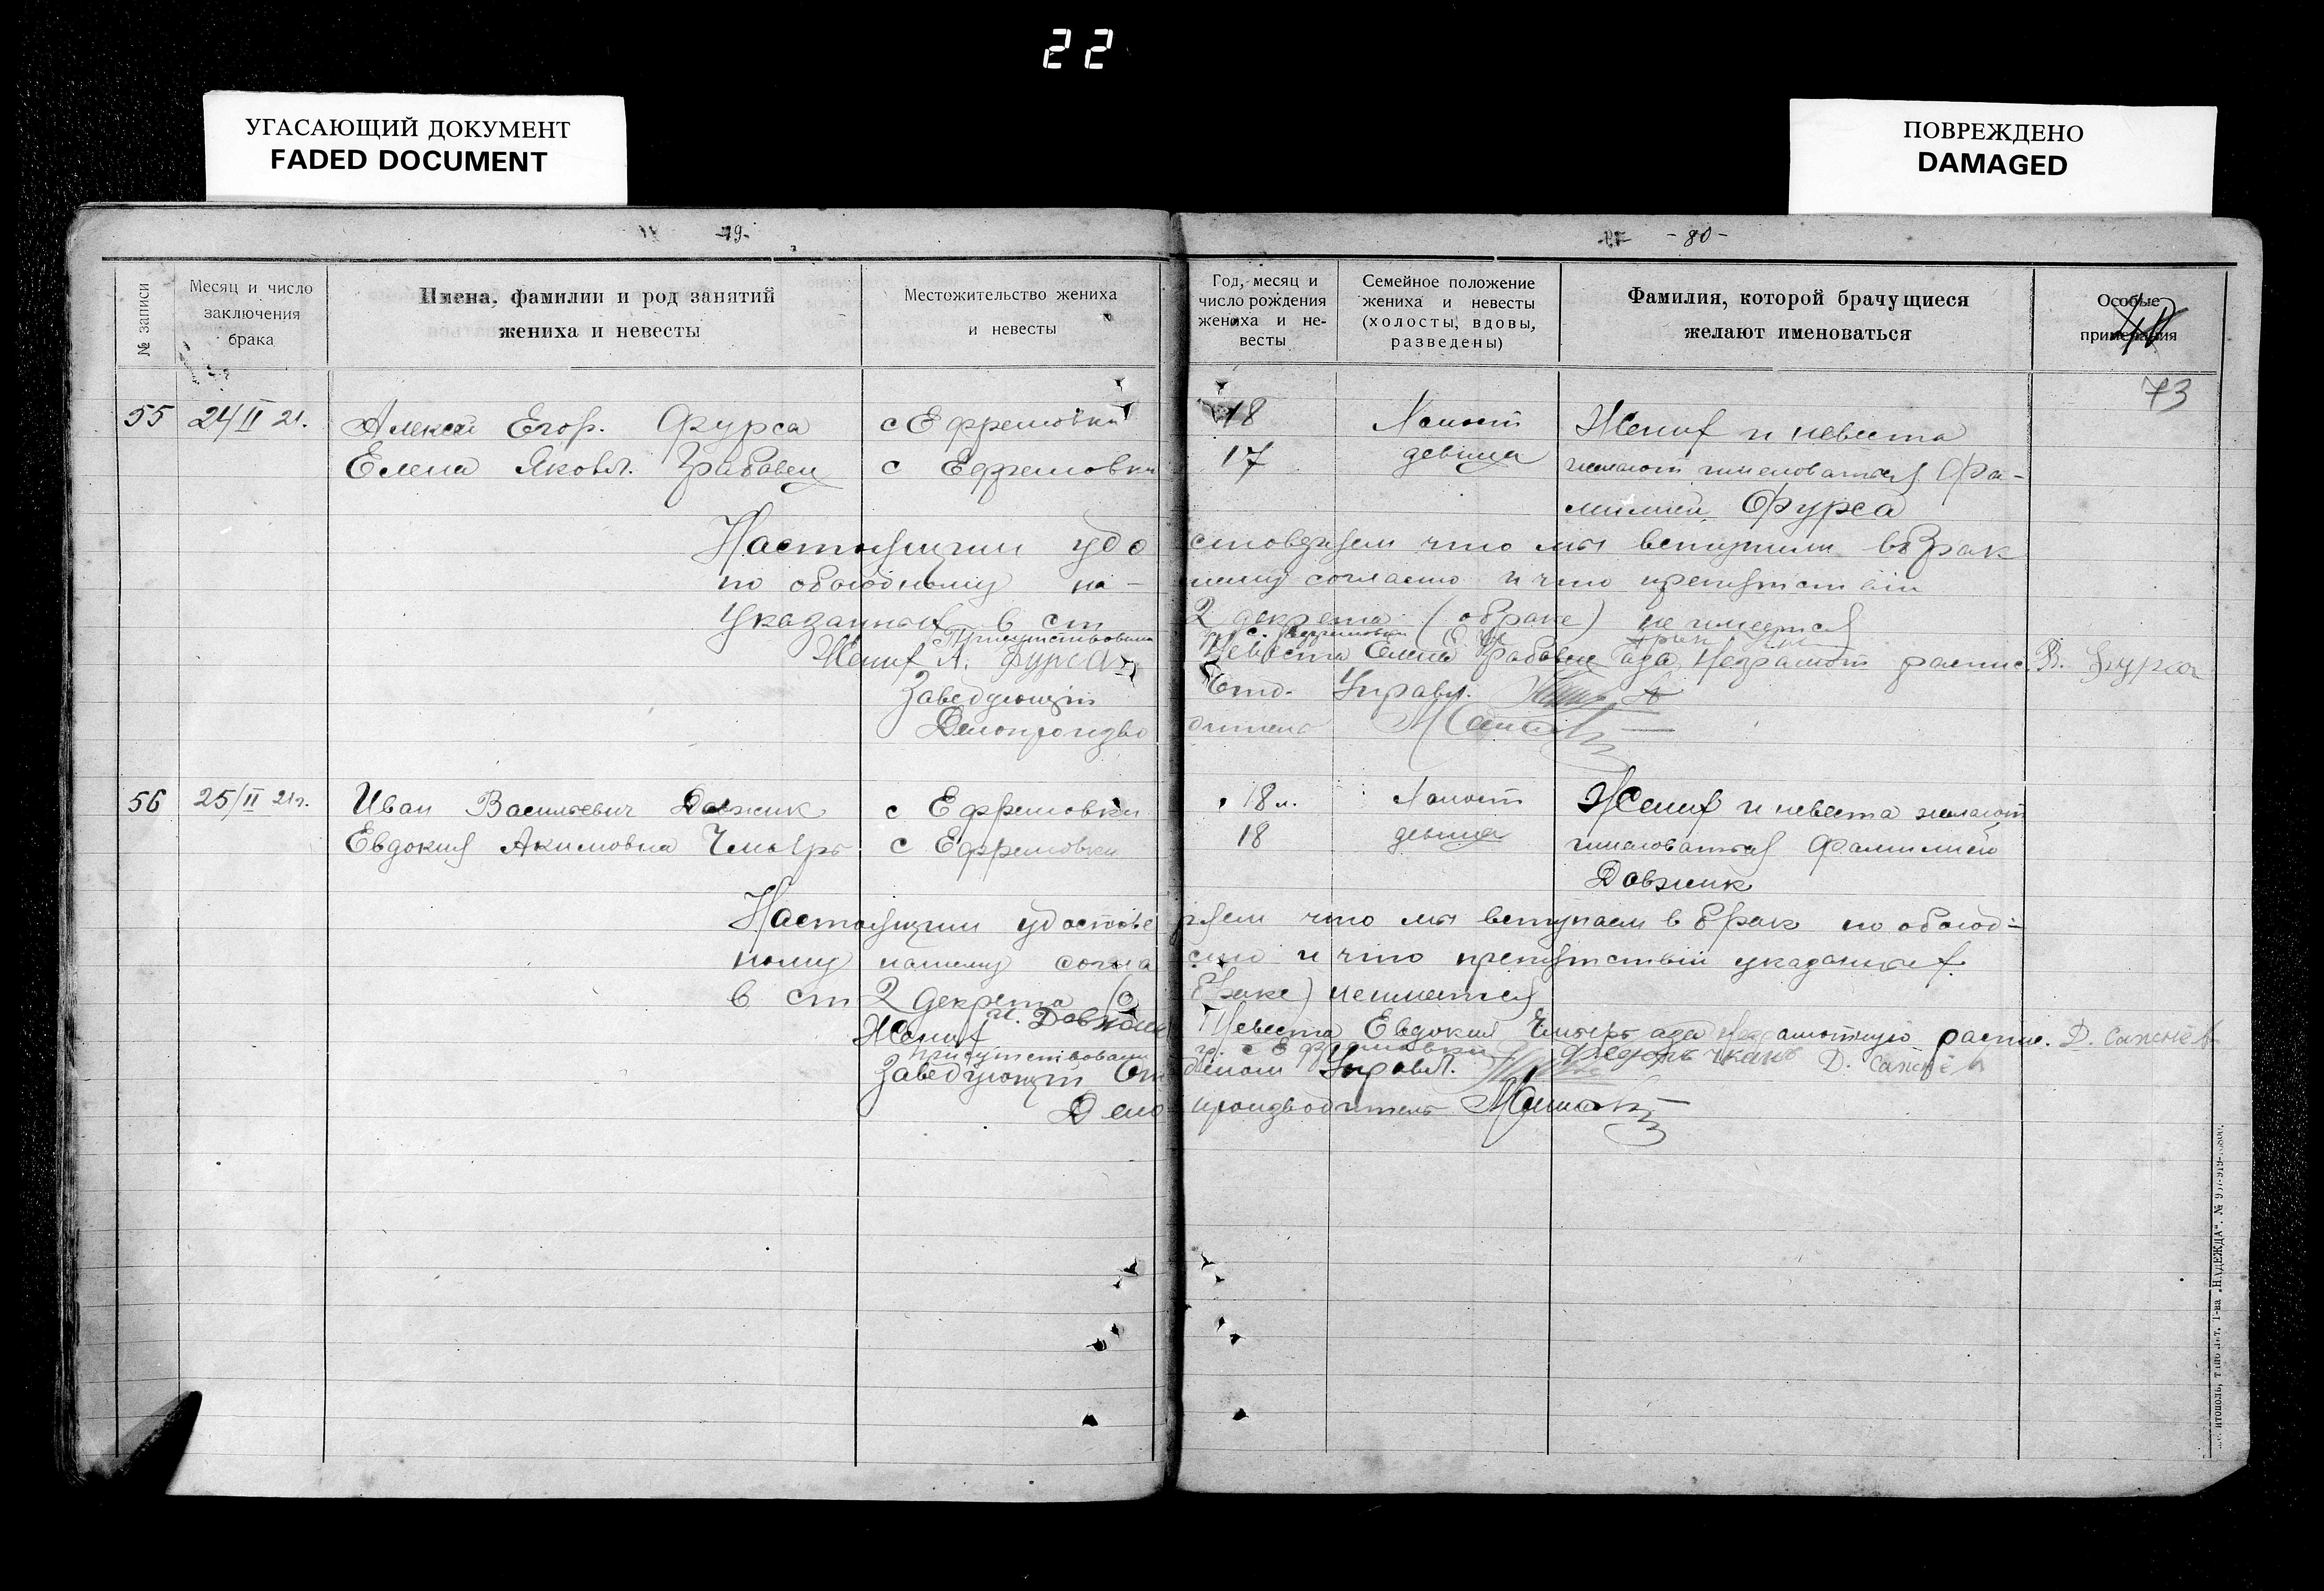 22
УГАСАЮЩИЙ ДОКУМЕНТ
FADED DOCUMENT
ПОВРЕЖДЕНО
DAMAGED
-79-
-80-
№ записи
Месяц и число заключения брака
Имена, фамилии и род занятий жениха и невесты
Местожительство жениха и невесты
Год, месяц и число рождения жениха и не-весты
Семейное положение жениха и невесты (холосты, вдовы, разведены)
Фамилия, которой брачущиеся желают именоваться
Особые примечания
73
55 24/II 21. Алексей Егор. Фурса с Ефремовки 18 Холост Жених и невеста
Елена Яковл. с Ефремовки 17 девица желают именоваться Фа-
милией Фурса
Настоящим удо стоверяем что мы вступили в брак
по обоюдному на- шему согласию и что препятствий
указанных в ст 2 декрета (о браке) не имеется
Присутствовали гр. с. Ефремовки
Жених А. Фурса Невеста Елена а за неграмот распис. В. Фурса
Заведующий Отд. Управл.
Делопроизво дитель
56 25/II 21г. Иван Васильевич Довжик с Ефремовки 18 л. Холост Жених и невеста желают
Евдокия Акимовна Чмырь с Ефремовки 18 девица именоваться фамилией
Довжик
Настоящим удостове ряем что мы вступаем в брак по обоюд-
ному нашему согла сию и что препятствий указанных
в ст 2 декрета (о браке) не имеется
Жених И. Довжик Невеста Евдокия Чмырь а за неграмотную распис. Д.
присутствовали гр. с Ефремовки Д.
Заведующий От делом Управл.
Дело производитель